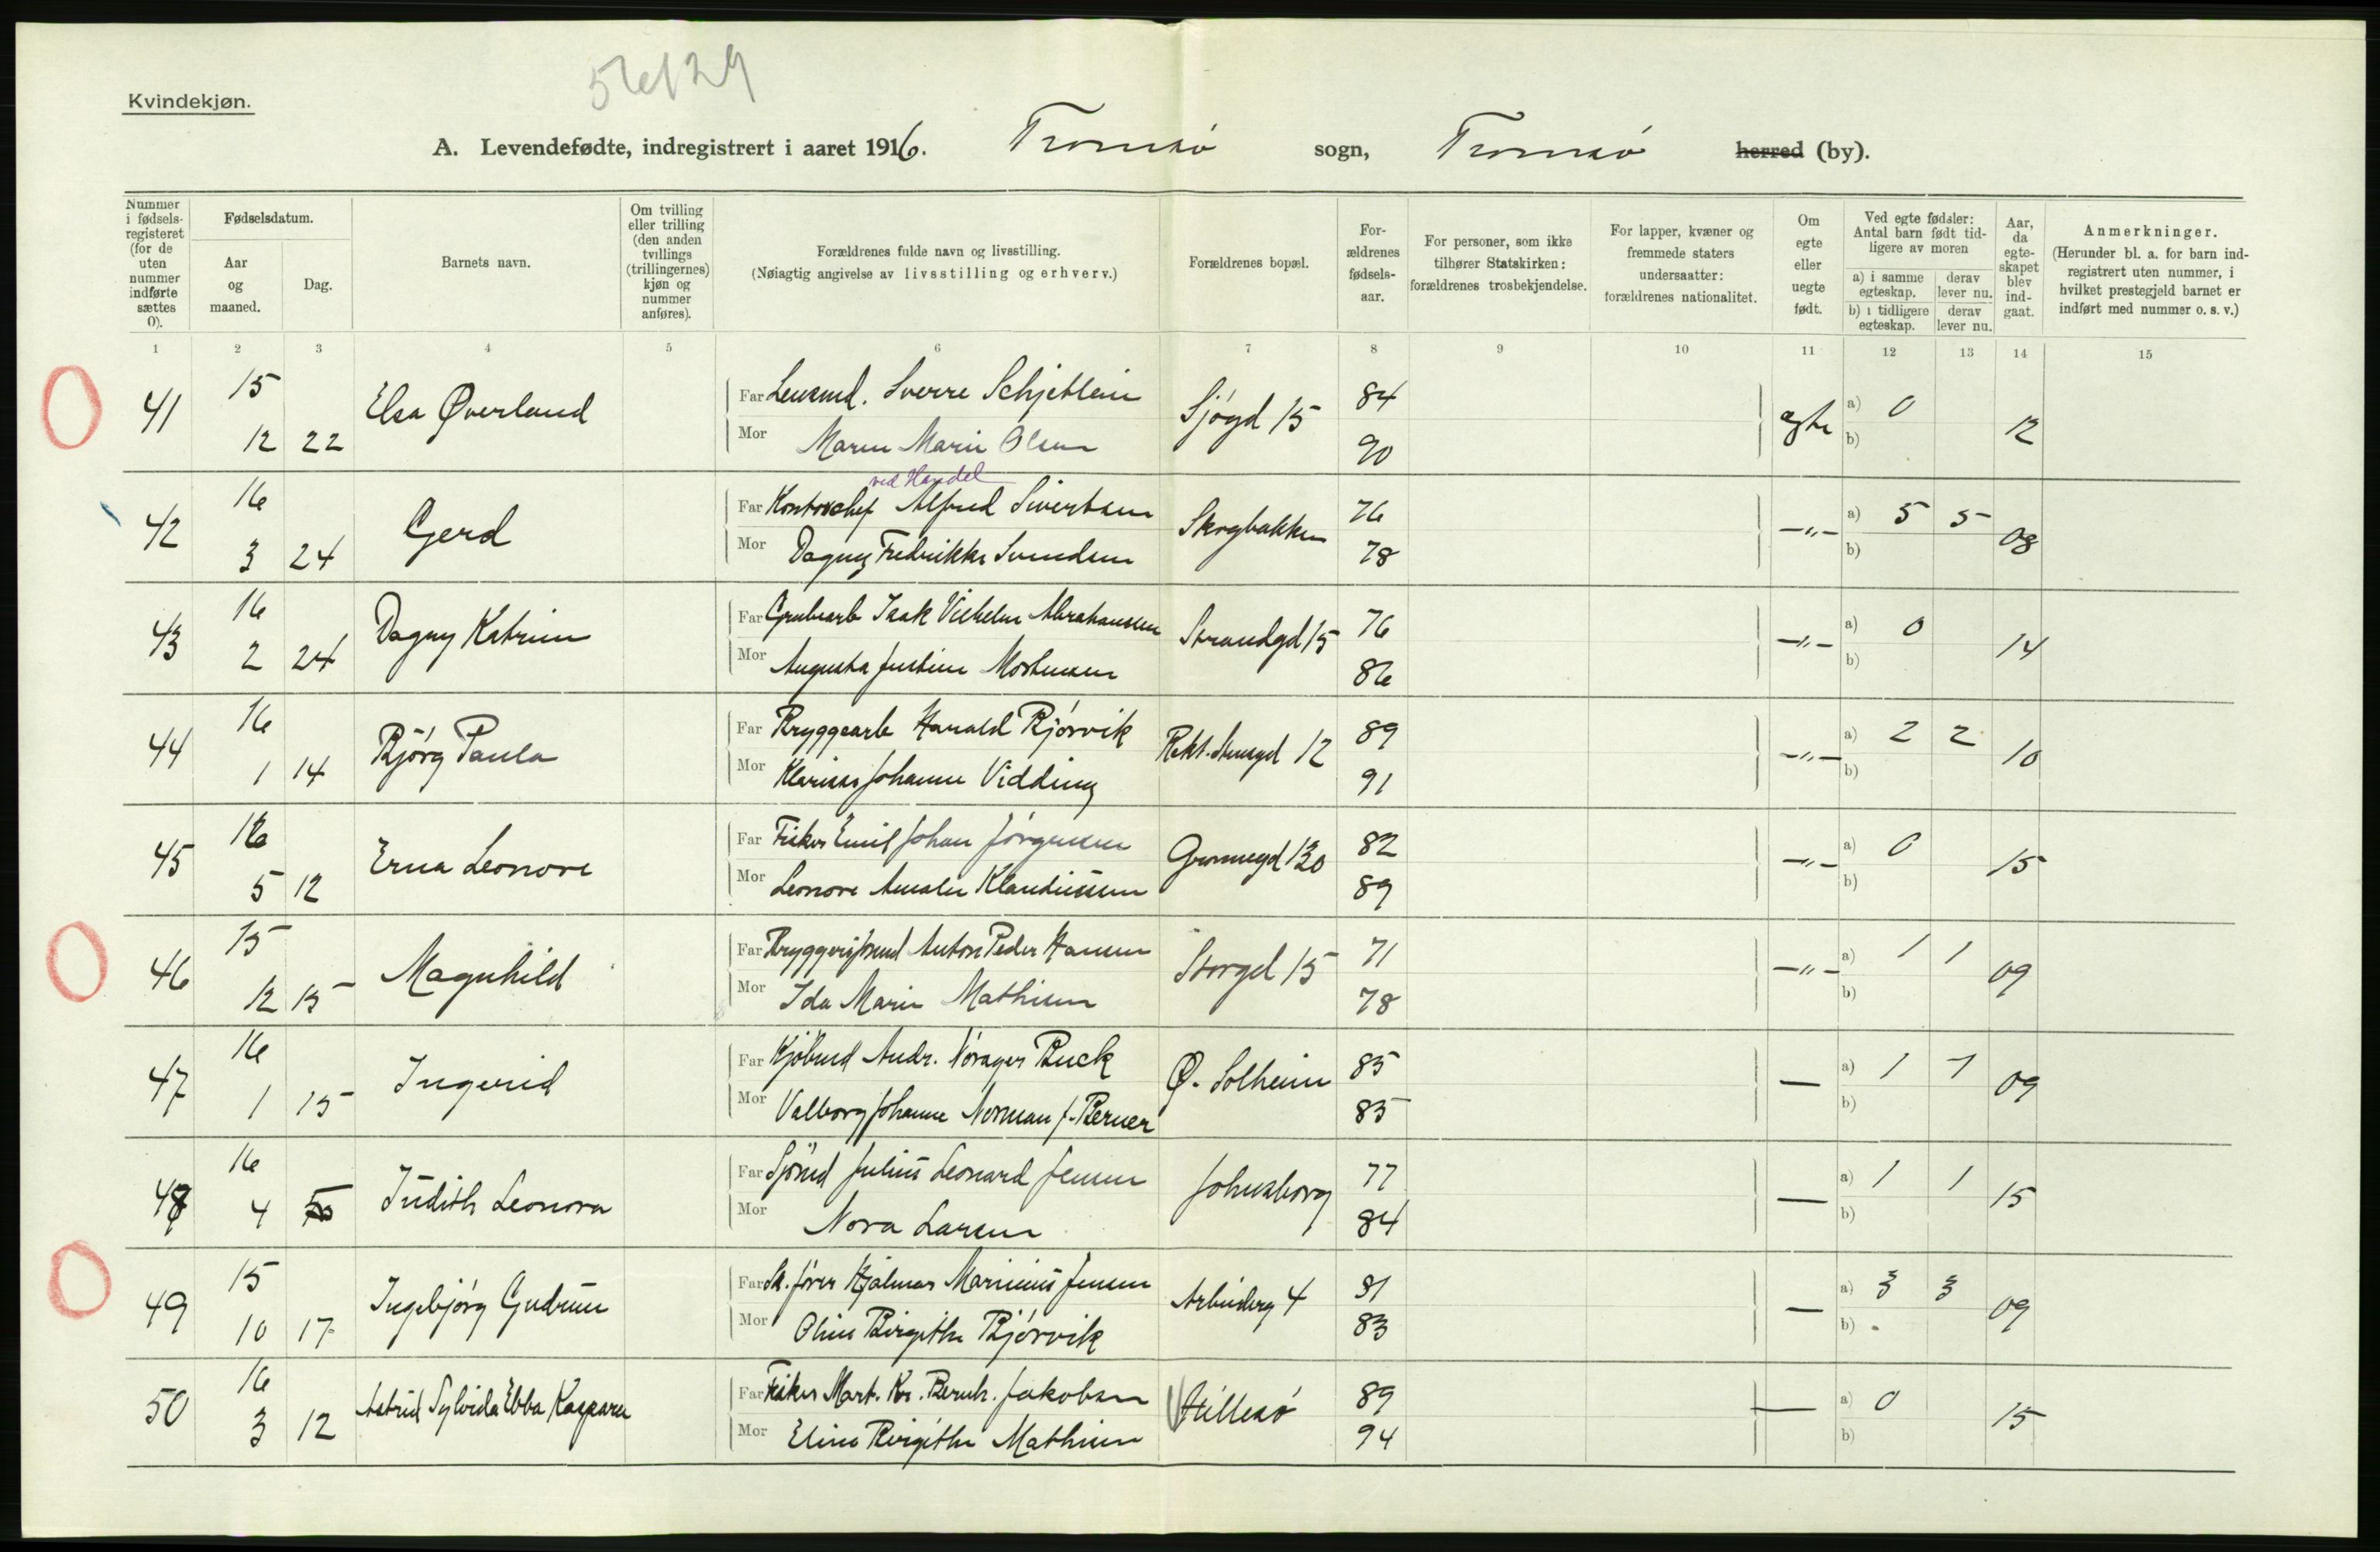 Kvindekjøn.
A. Levendefødte, indregistrert i aaret 1916. Tromsø sogn, Tromsø herred (by).
Nummer i fødsels-registeret (for de uten nummer indførte sættes 0).
Fødselsdatum.
Aar og maaned.
Dag.
Barnets navn.
Om tvilling eller trilling (den anden tvillings (trillingernes) kjøn og nummer anføres).
Forældrenes fulde navn og livsstilling.
(Nøiagtig angivelse av livsstilling og erhverv.)
Forældrenes bopæl.
For-ældrenes fødsels-aar.
For personer, som ikke tilhører Statskirken: forældrenes trosbekjendelse.
For lapper, kvæner og fremmede staters undersaatter: forældrenes nationalitet.
Om egte eller uegte født.
Ved egte fødsler: Antal barn født tid-ligere av moren
a) i samme egteskap. derav lever nu.
b) i tidligere egteskap. derav lever nu.
Aar, da egte-skapet blev ind-gaat.
Anmerkninger.
(Herunder bl. a. for barn ind-registrert uten nummer, i hvilket prestegjeld barnet er indført med nummer o. s. v.)
1 2 3 4 5 6 7 8 9 10 11 12 13 14 15
41 15 12 22 Elsa Øverland Far Sverre Schjetlein Sjøgd 15 84 egte a) 0 12
Mor Maren Marie Olsen 90 b)
ved Handel
42 16 3 24 Gerd Far Kontorchef Alfred Sivertsen Skogbakken 76 —"— a) 5 5 08
Mor Dagny Fredrikke Svendsen 78 b)
43 16 2 24 Dagny Katrine Far Grubearb Isak Vilhelm Abrahamsen Strandgd 15 76 —"— a) 0 14
Mor Augusta Justine Mortensen 86 b)
44 16 1 14 Bjørg Paula Far Bryggearb Harald Bjørvik 12 89 —"— a) 2 2 10
Mor Klarissa Johanne Vidding 91 b)
45 16 5 12 Erna Leonore Far Fisker Emil Johan Jørgensen Grønnegd 130 82 —"— a) 0 15
Mor Leonore Amalie Klaudiussen 89 b)
46 15 12 15 Magnhild Far Anton Peder Hansen Storgd 15 71 —"— a) 1 1 09
Mor Ida Marie Mathisen 78 b)
47 16 1 15 Ingerid Far Kjøbmd Andr. Norager Buck Ø. Solheim 85 — a) 1 1 09
Mor Valborg Johanne Norman f. Berner 85 b)
48 16 4 Judith Leonora Far Sjømd Julius Leonard Jensen Johnsborg 77 — a) 1 1 15
Mor Nora Larsen 84 b)
49 15 10 17 Ingebjørg Gudrun Far Sk. fører Hjalmar Marinius Jensen 4 81 — a) 3 3 09
Mor Oline Birgithe Bjørvik 83 b)
50 16 3 12 Astrid Sylvida Ebba Kaspara Far Fisker Mart. Kr. Bernh. Jakobsen Hillesø 89 — a) 0 15
Mor Eline Birgithe Mathisen 94 b)